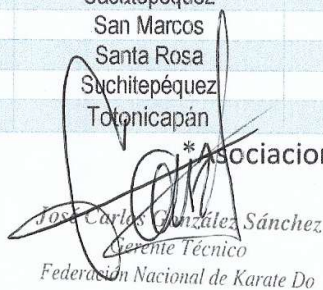 Sacatepéquez
San Marcos
Santa Rosa
Suchitepéquez
Totonicapán
*Asociacion
José Carlos González Sánchez
Gerente Técnico
Federación Nacional de Karate Do